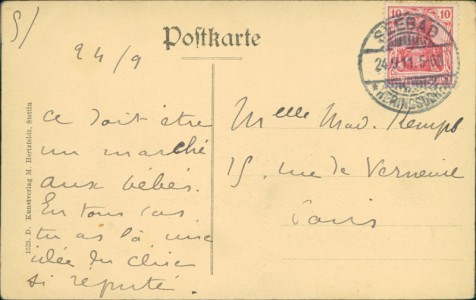 5/
24/9
Postkarte
10 10
SEEBAD
24.9.11.5-6N
* HERINGSDORF *
Ce doit être
un marché
aux bébés.
En tous cas
tu as là une
idée du chic
si réputé.
Melle Mad. Kempf
15, rue de Verneuil
Paris
D. Kunstverlag M. Hertzfeldt, Stettin